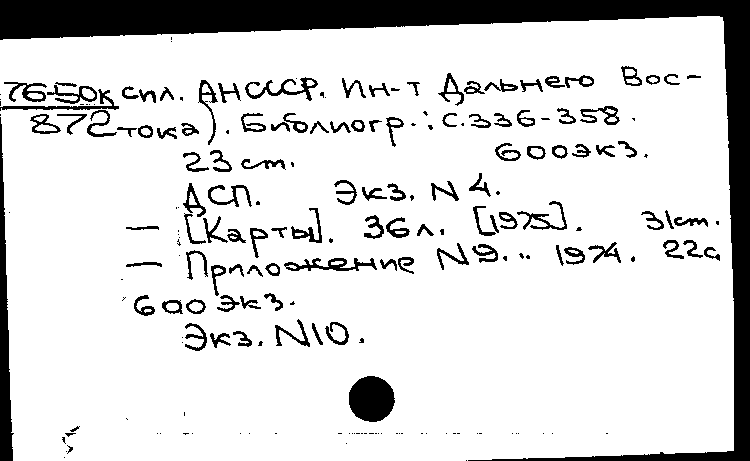 76-50к спл. АНСССР. Ин-т Дальнего Вос-
872 тока). Библиогр.: с.336-358.
23 ст. 600экз.
ДСП. Экз. N 4.
— [Карты]. 36 л. [1975]. 31ст.
— Приложение N9... 1974. 22с
600 экз.
Экз. N10.
5